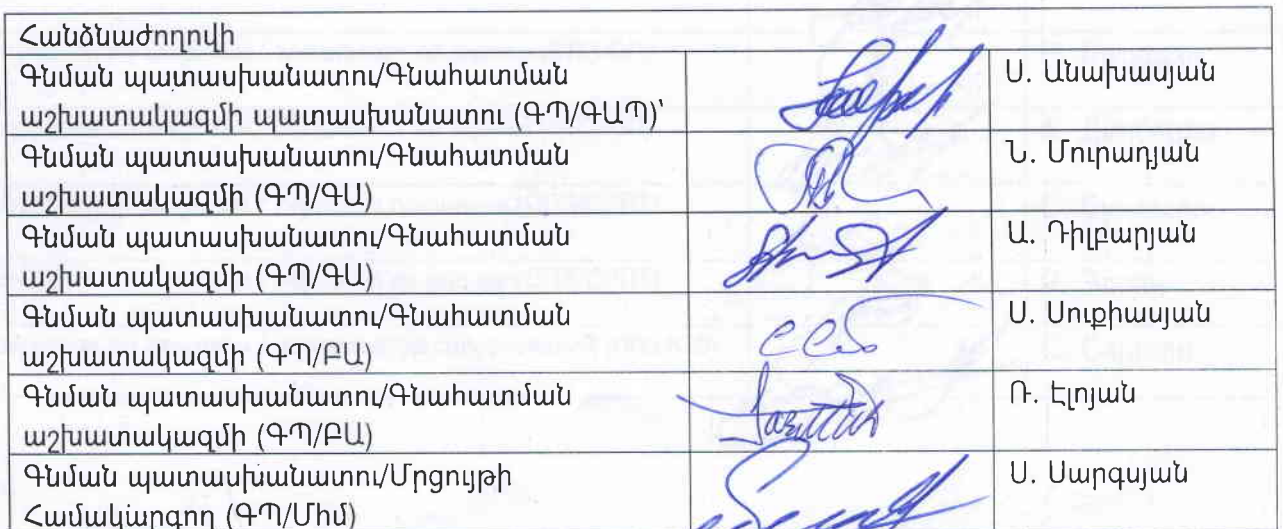 Հանձնաժողովի
Գնման պատասխանատու/Գնահատման
աշխատակազմի պատասխանատու (ԳՊ/ԳԱՊ)՝
Ս. Անախասյան
Գնման պատասխանատու/Գնահատման
աշխատակազմի (ԳՊ/ԳԱ)
Ն. Մուրադյան
Գնման պատասխանատու/Գնահատման
աշխատակազմի (ԳՊ/ԳԱ)
Ա. Դիլբարյան
Գնման պատասխանատու/Գնահատման
աշխատակազմի (ԳՊ/ԲԱ)
Ս. Սուքիասյան
Գնման պատասխանատու/Գնահատման
աշխատակազմի (ԳՊ/ԲԱ)
Ռ. Էլոյան
Գնման պատասխանատու/Մրցույթի
Համակարգող (ԳՊ/Մհմ)
Ս. Սարգսյան